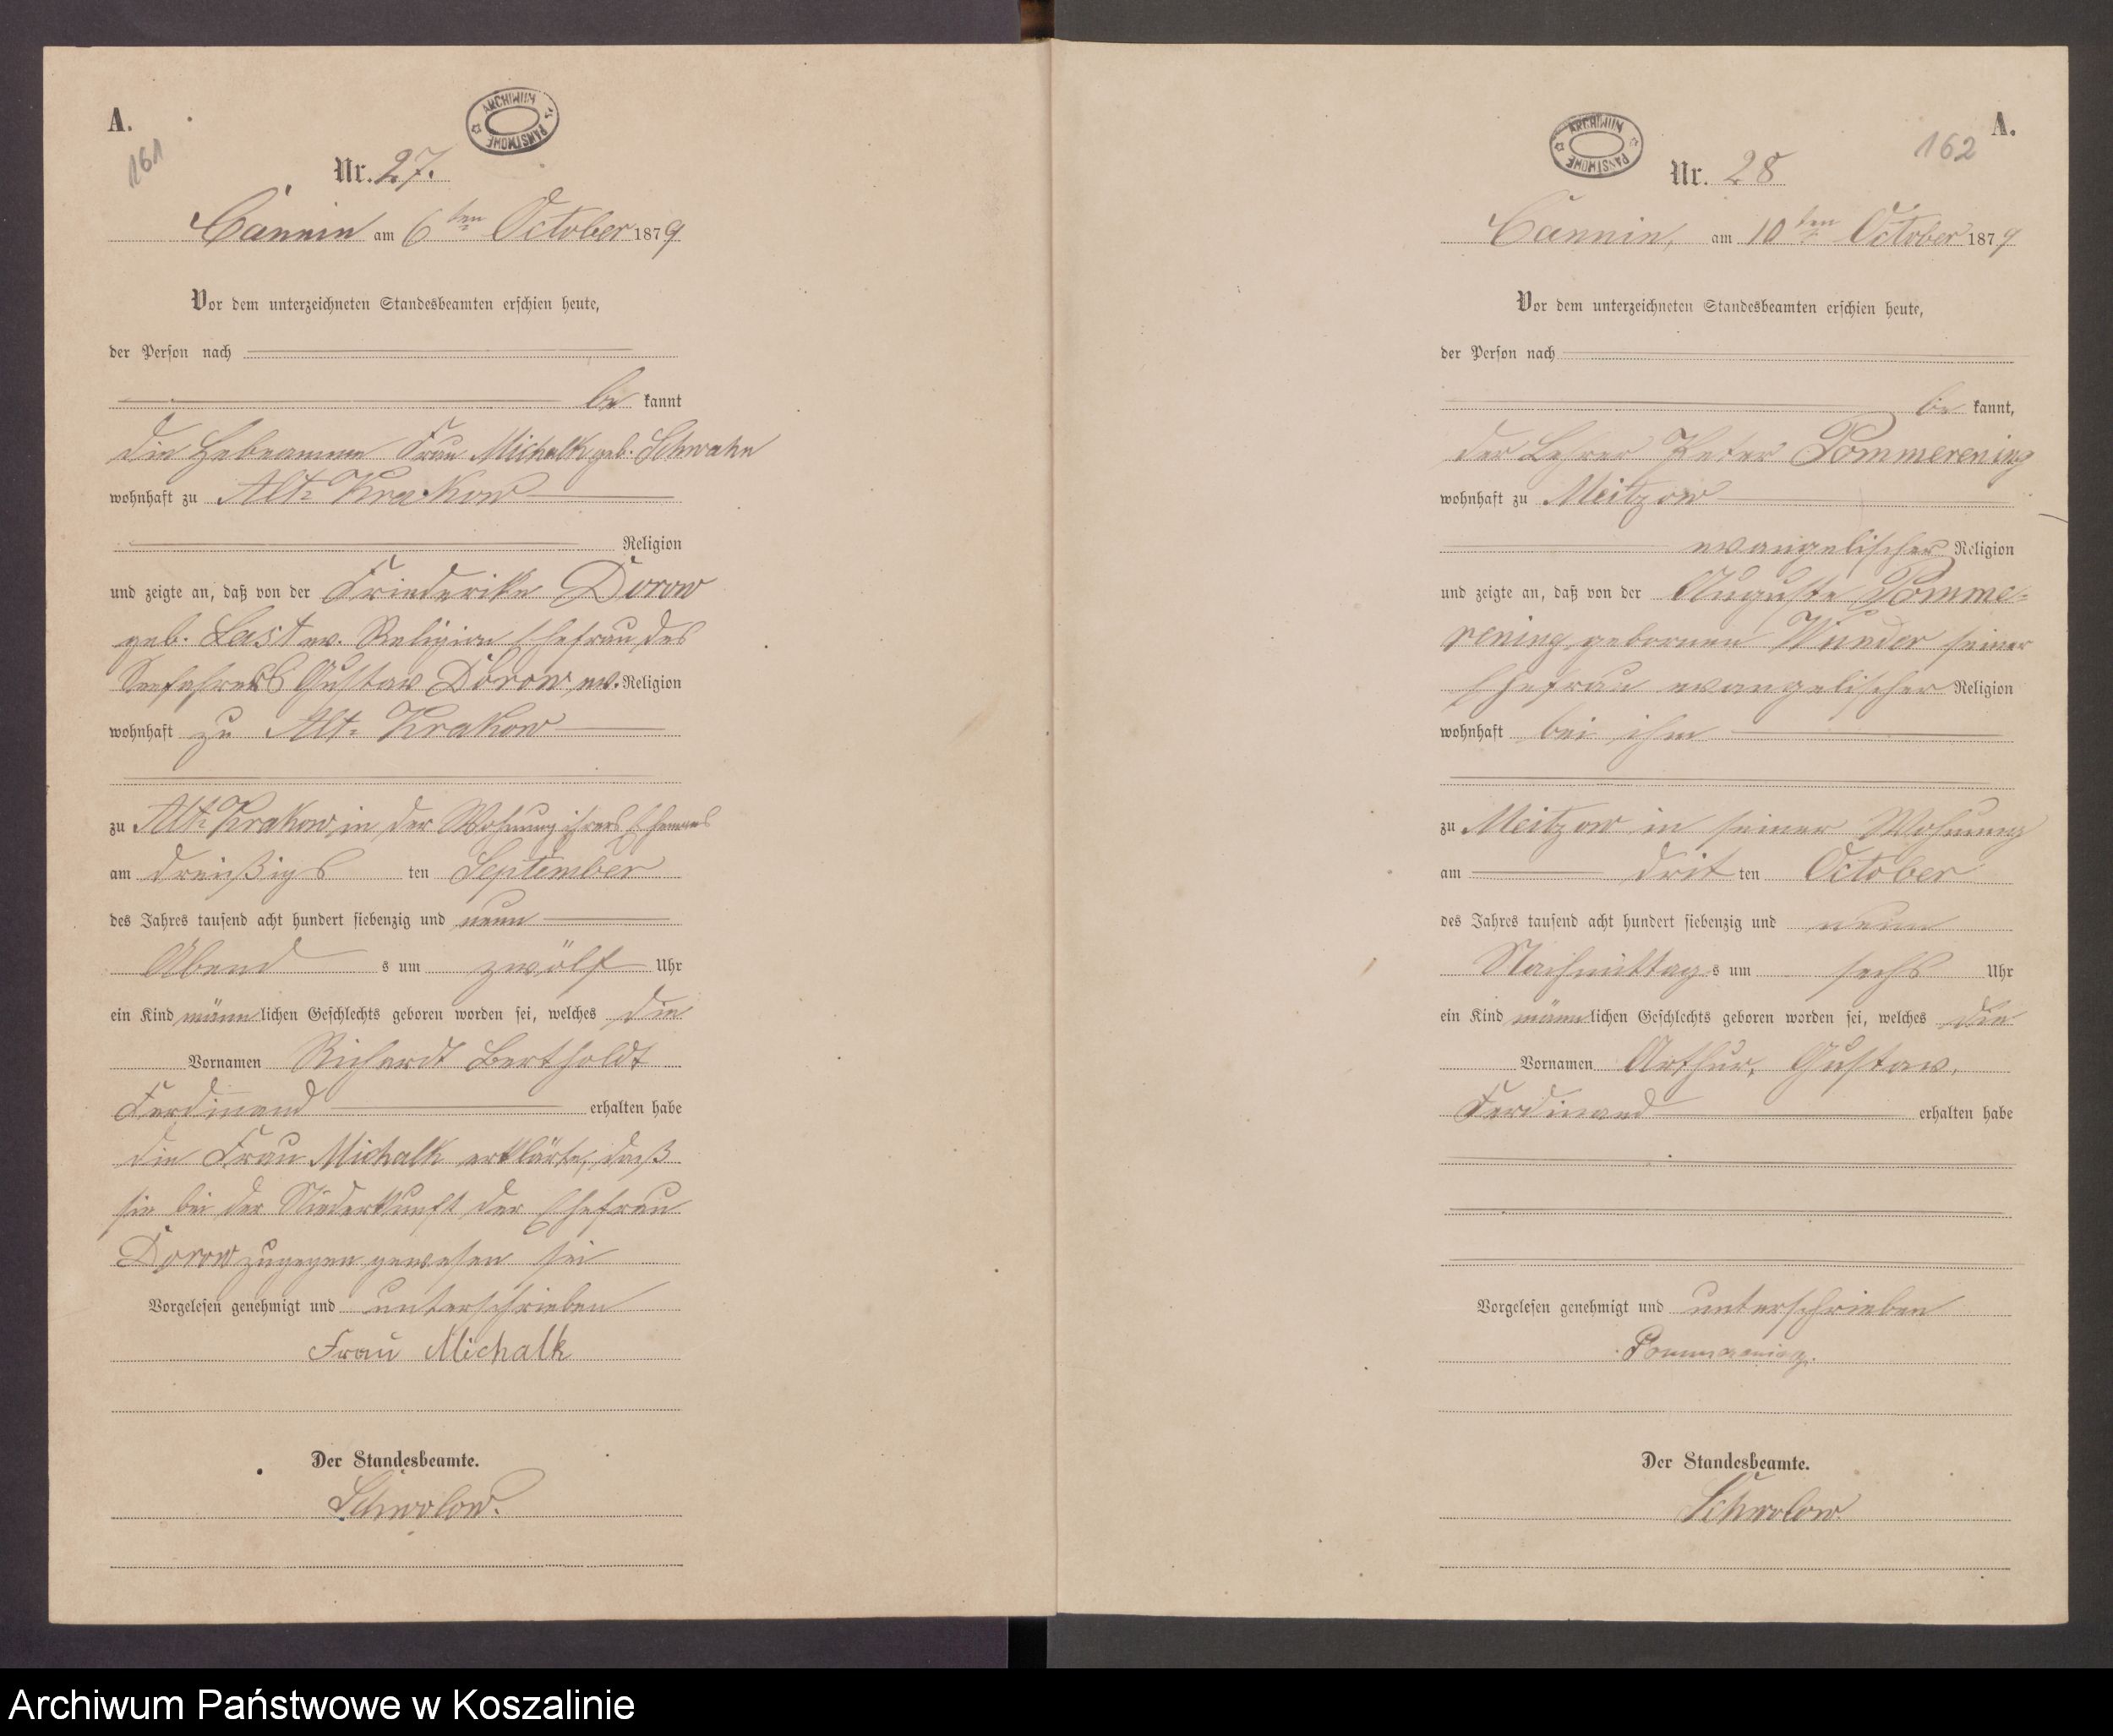 A.
161
ARCHIWUM PAŃSTWOWE
Nr. 27.
Cannin am 6ten October 1879
Vor dem unterzeichneten Standesbeamten erschien heute,
der Person nach
be kannt
die Hebeamme Frau Michalk geb. Schwahn
wohnhaft zu Alt-Krakow
Religion
und zeigte an, daß von der Friederike Dorow
geb. Last ev. Religion Ehefrau des
Seefahrers Gustav Dorow, ev. Religion
wohnhaft zu Alt-Krakow
zu Alt-Krakow, in der Wohnung ihres Ehemans
am dreißigs ten September
des Jahres tausend acht hundert siebenzig und neun
Abend s um zwölf Uhr
ein Kind männ lichen Geschlechts geboren worden sei, welches die
Vornamen Richardt Bertholdt
Ferdinand erhalten habe
die Frau Michalk erklärte, daß
sie bei der Niederkunft der Ehefrau
Dorow zugegen gewesen sei
Vorgelesen genehmigt und unterschrieben
Frau Michalk
Der Standesbeamte.
Schwolow.
A.
162
ARCHIWUM PAŃSTWOWE
Nr. 28
Cannin, am 10ten October 1879
Vor dem unterzeichneten Standesbeamten erschien heute,
der Person nach
be kannt,
der Lehrer Peter Pommerening
wohnhaft zu Meitzow
evangelischer Religion
und zeigte an, daß von der Auguste Pomme-
rening gebornen Wunder seiner
Ehefrau evangelischer Religion
wohnhaft bei ihm
zu Meitzow in seiner Wohnung
am drit ten October
des Jahres tausend acht hundert siebenzig und neun
Nachmittag s um sechs Uhr
ein Kind männ lichen Geschlechts geboren worden sei, welches die
Vornamen Arthur, Gustav,
Ferdinand erhalten habe
Vorgelesen genehmigt und unterschrieben
Pommerening.
Der Standesbeamte.
Schwolow.
Archiwum Państwowe w Koszalinie